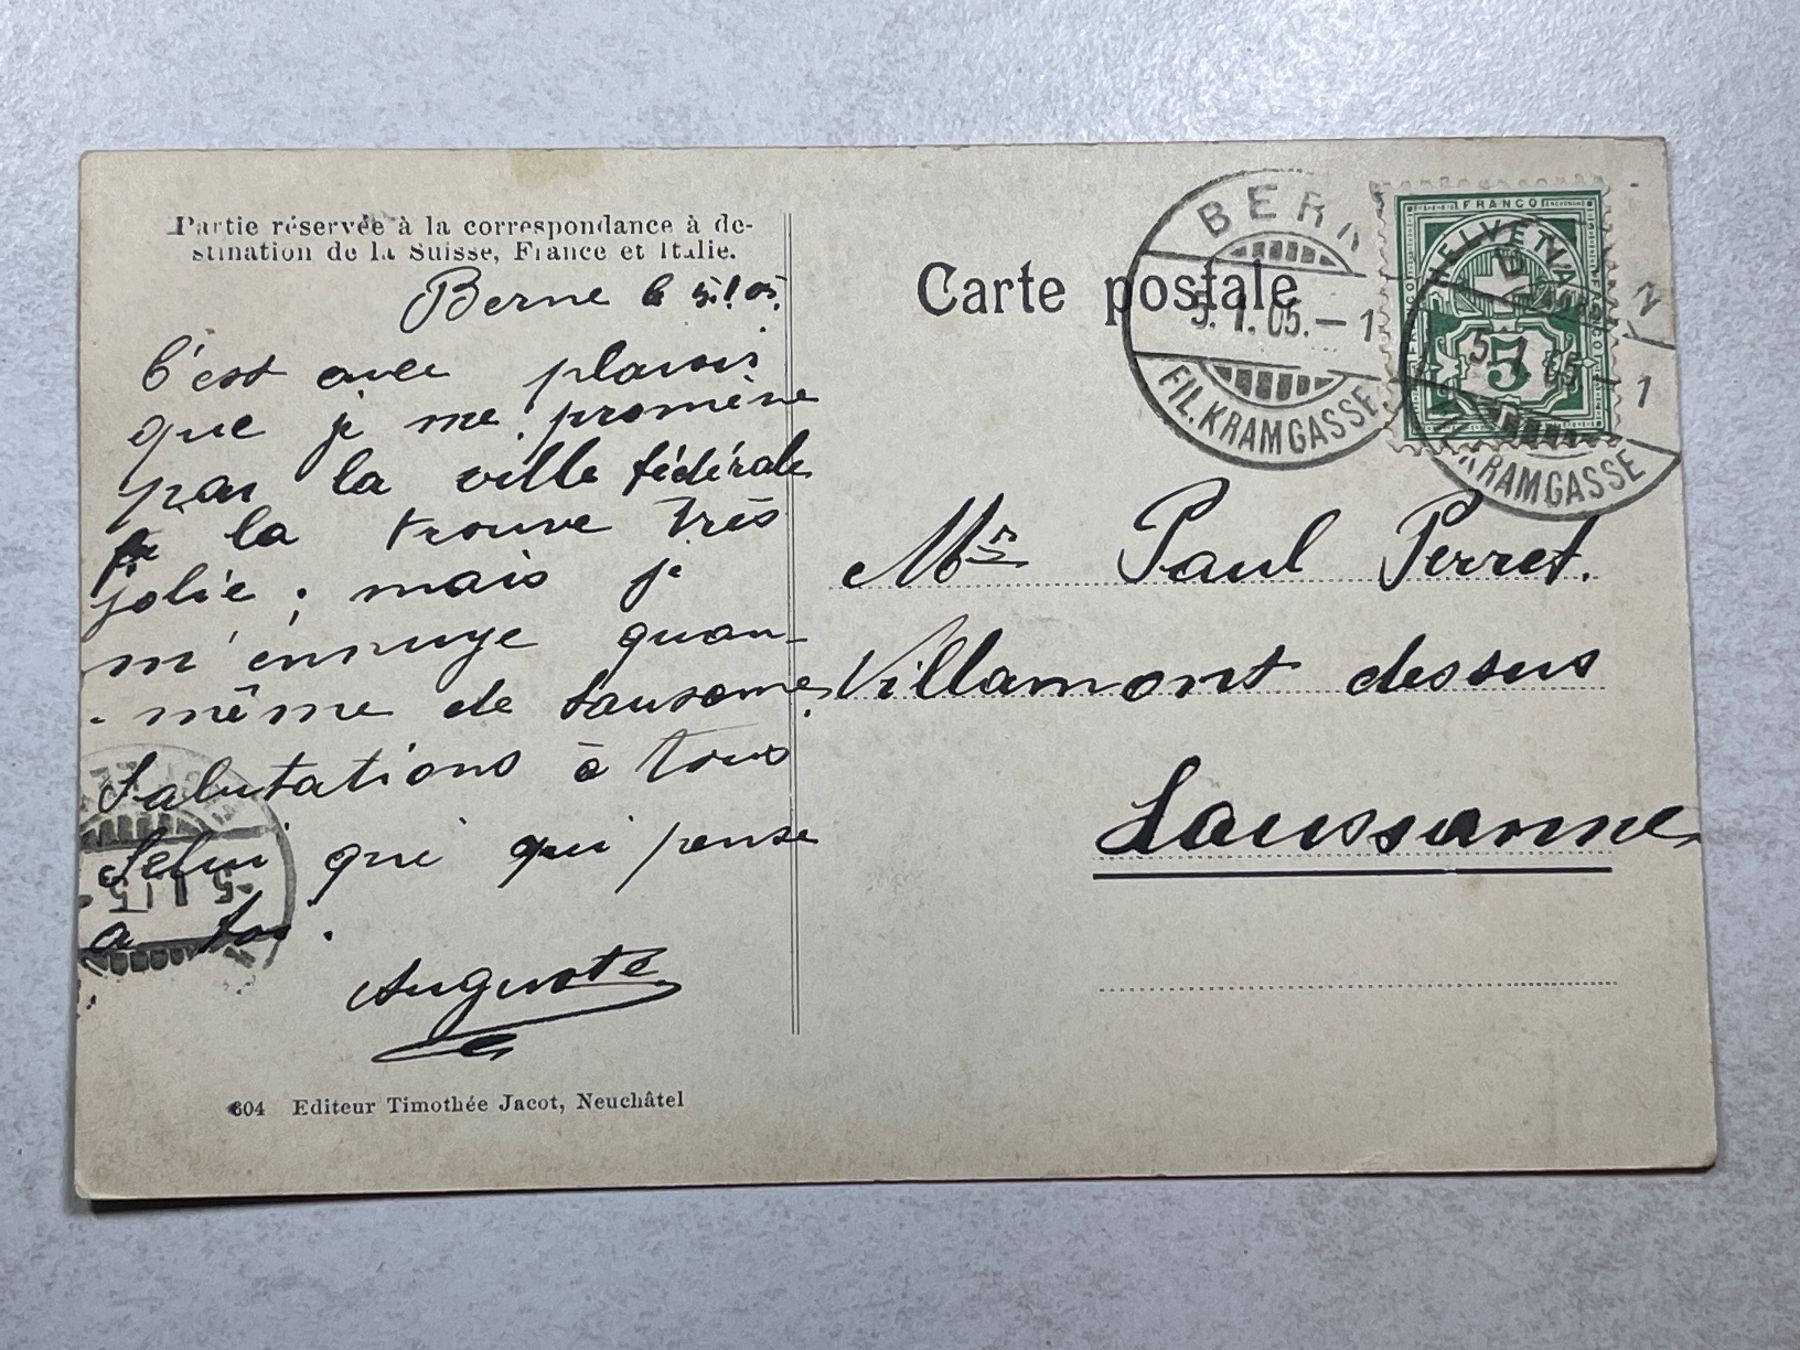 Partie réservée à la correspondance à de-
stination de la Suisse, France et Italie.
Berne le 5.1.05.
C'est avec plaisir
que je me promène
par la ville fédérale
la trouve très
jolie ; mais je
m'ennuye quan-
-même de Lausanne.
Salutations à tous
Selui qui qui pense
a toi.
Auguste
604 Editeur Timothée Jacot, Neuchâtel
Carte postale
BERN
5.1.05.–1
FIL.KRAMGASSE.
FRANCO
HELVETIA
5
5.1.05–1
KRAMGASSE
Mr Paul Perret.
Villamont dessus
Laussanne
5.1.05